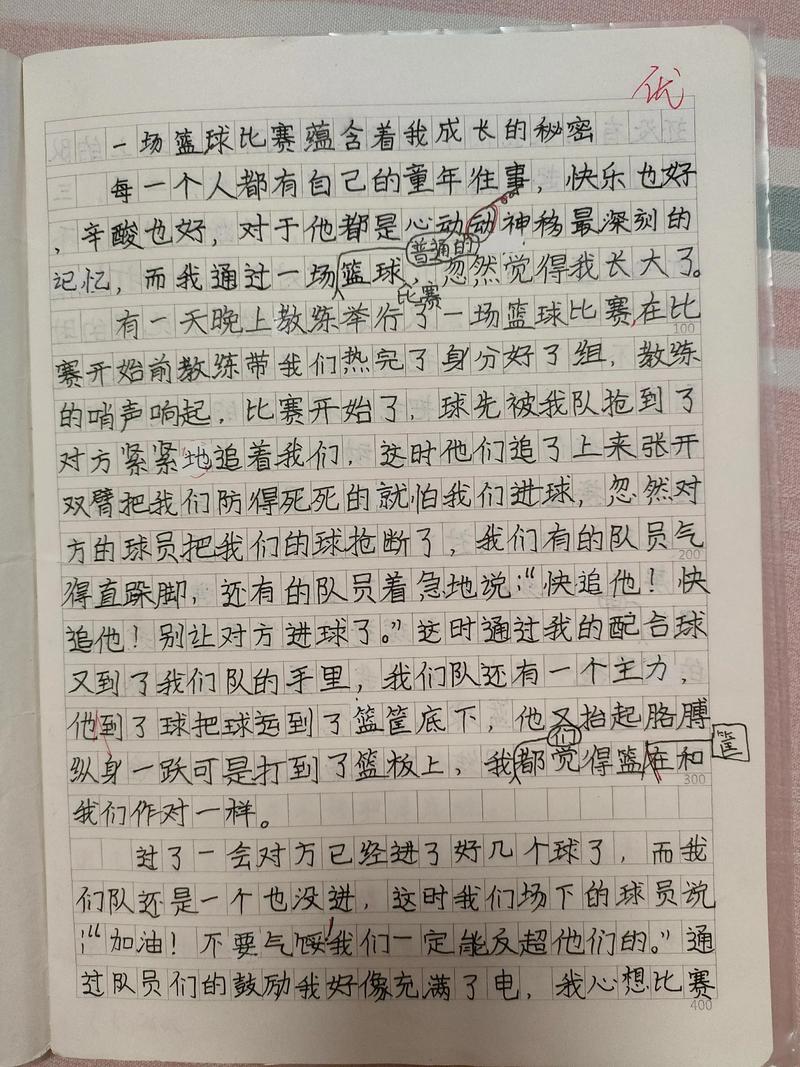 优
一场篮球比赛蕴含着我成长的秘密
每一个人都有自己的童年往事，快乐也好
，辛酸也好，对于他都是心动动神移最深刻的
普通的
记忆，而我通过一场篮球，忽然觉得我长大了。
比赛
有一天晚上教练举行了一场篮球比赛，在比
100
赛开始前教练带我们热完了身分好了组，教练
的哨声响起，比赛开始了，球先被我队抢到了
对方紧紧地追着我们，这时他们追了上来张开
双臂把我们防得死死的就怕我们进球，忽然对
方的球员把我们的球抢断了，我们有的队员气
200
得直跺脚，还有的队员着急地说：“快追他！快
追他！别让对方进球了。”这时通过我的配合球
又到了我们队的手里，我们队还有一个主力，
他到了球把球运到了篮筐底下，他又抬起胳膊
们
筐
纵身一跃可是打到了篮板上，我都觉得篮在和
300
我们作对一样。
过了一会对方已经进了好几个球了，而我
们队还是一个也没进，这时我们场下的球员说
：“加油！不要气馁！我们一定能反超他们的。”通
过队员们的鼓励我好像充满了电，我心想比赛
400